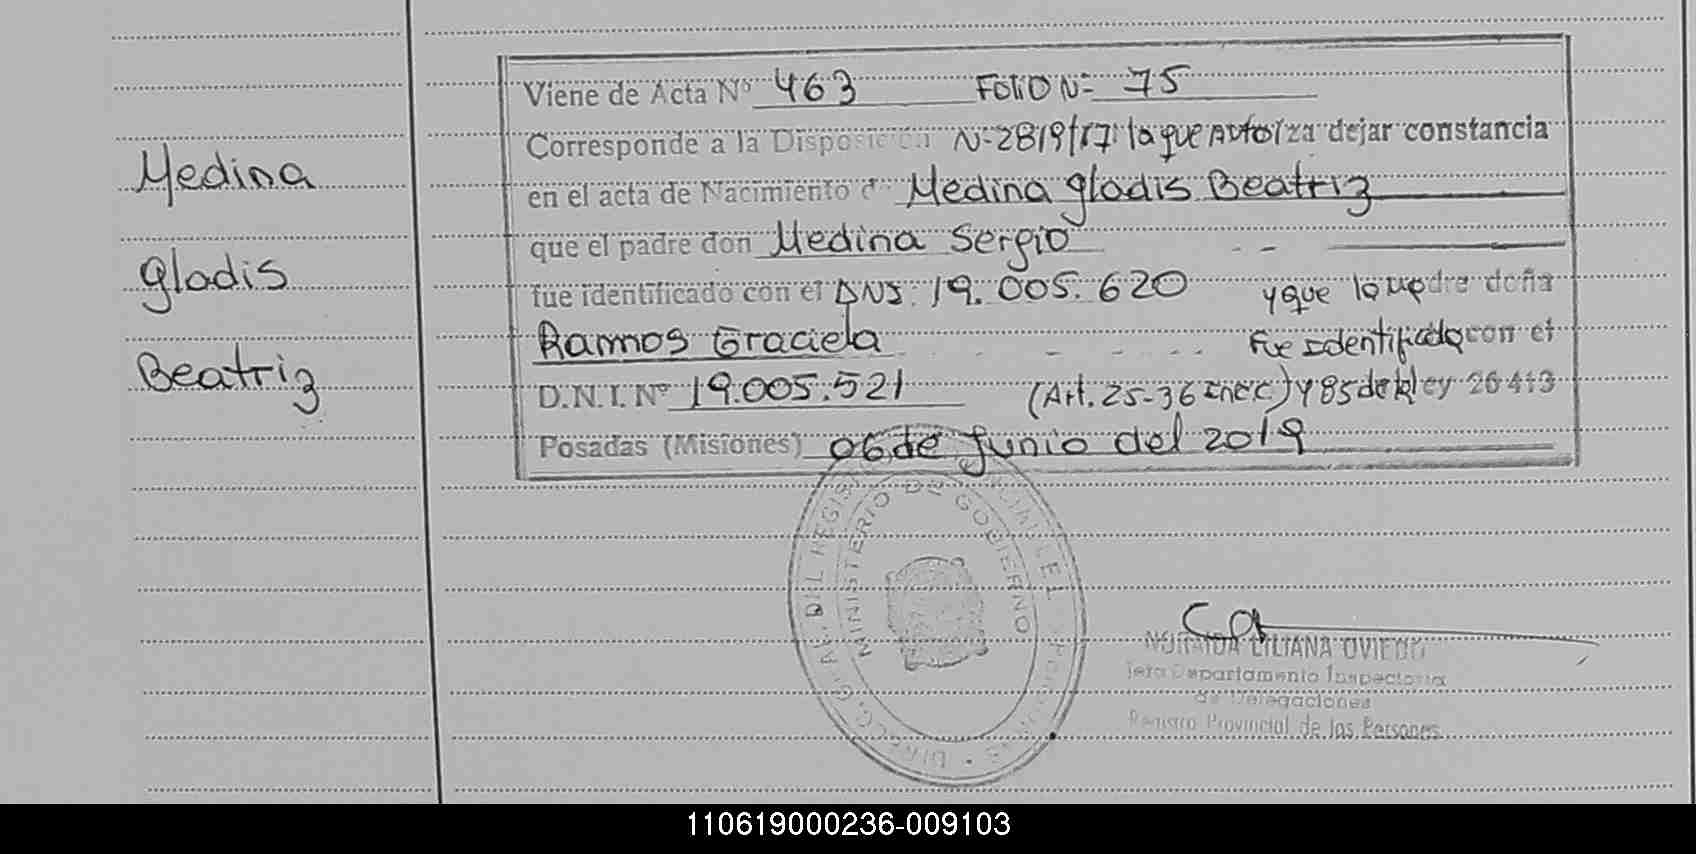 Medina
Gladis
Beatriz
Viene de Acta Nº 463 Folio Nº 75
Corresponde a la Disposición Nº 2819/17 la que Autoriza dejar constancia
en el acta de Nacimiento d Medina Gladis Beatriz
que el padre don Medina Sergio
fue identificado con el DNI. 19.005.620 y que la madre doña
Ramos Graciela fue identificado con el
D.N.I. Nº 19.005.521 (Art. 25-36 inc C) y 85 de la Ley 26413
Posadas (Misiones) 06 de Junio del 2019
MINISTERIO DE GOBIERNO
LILIANA OVIEDO
Departamento Inspectoria
de Delegaciones
Registro Provincial de las Personas
110619000236-009103